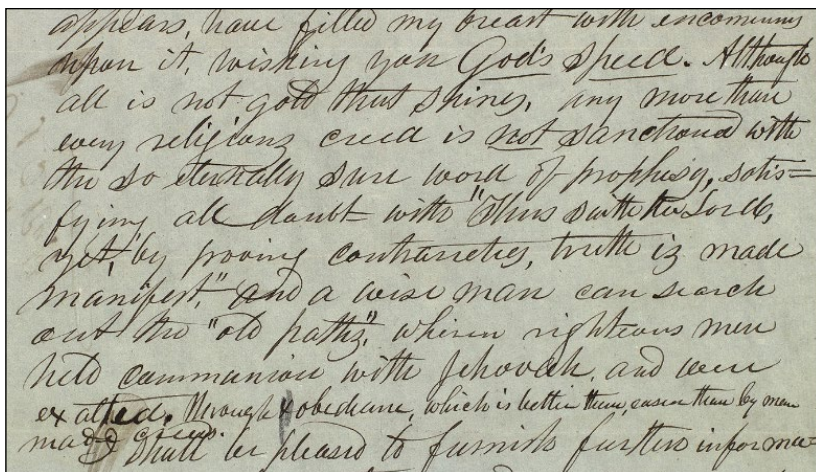 appears, have filled my breast with encomiums
upon it, wishing you God's speed. Although
all is not gold that shines, any more than
every religious creed is not sanctioned with
the so eternally sure word of prophesy, satis=
fying all doubt with "Thus saith the Lord",
yet, "by proving contrarieties, truth is made
manifest," and a wise man can search
out the "old paths", wherein righteous men
held communion with Jehovah, and were
exalted, through obedience, which is better than, easier than by men
made creeds.
I shall be pleased to furnish further informa-